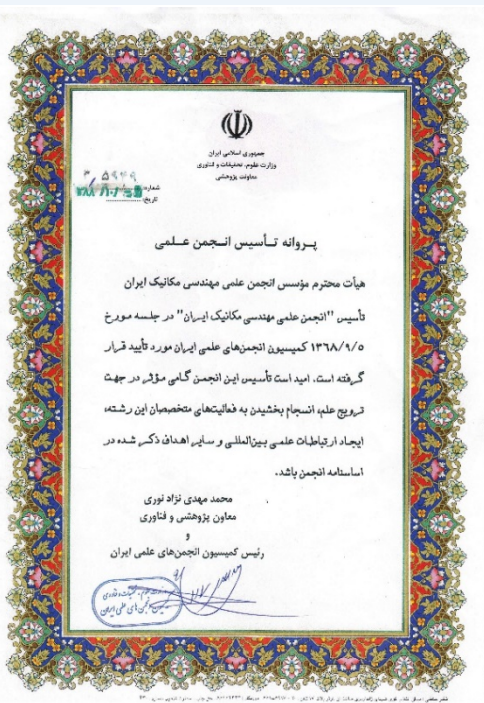 جمهوری اسلامی ایران
وزارت علوم، تحقیقات و فناوری
معاونت پژوهشی
شماره:
تاریخ:
پـروانه تـأسیس انـجمن عـلـمی
هیأت محترم مؤسس انجمن علمی مهندسی مکانیک ایران
تأسیس "انجمن علمی مهندسی مکانیک ایـران" در جلسه مـورخ
۱۳۶۸/۹/۵ کمیسیون انجمن‌های علمی ایران مورد تأیید قرار
گرفته است. امید است تأسیس این انجمن گامی مؤثر در جهت
ترویج علم، انسجام بخشیدن به فعالیت‌های متخصصان این رشته،
ایجاد ارتباطات علمی بین‌المللی و سایر اهداف ذکر شده در
اساسنامه انجمن باشد.
محمد مهدی نژاد نوری
معاون پژوهشی و فناوری
و
رئیس کمیسیون انجمن‌های علمی ایران